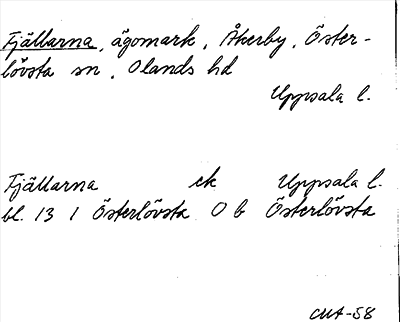 Fjällarna, ägomark, Åkerby, Öster-
lövsta sn, Olands hd
Uppsala l.
Fjällarna ek Uppsala l.
bl. 13 I Österlövsta O b Österlövsta
CMA-58